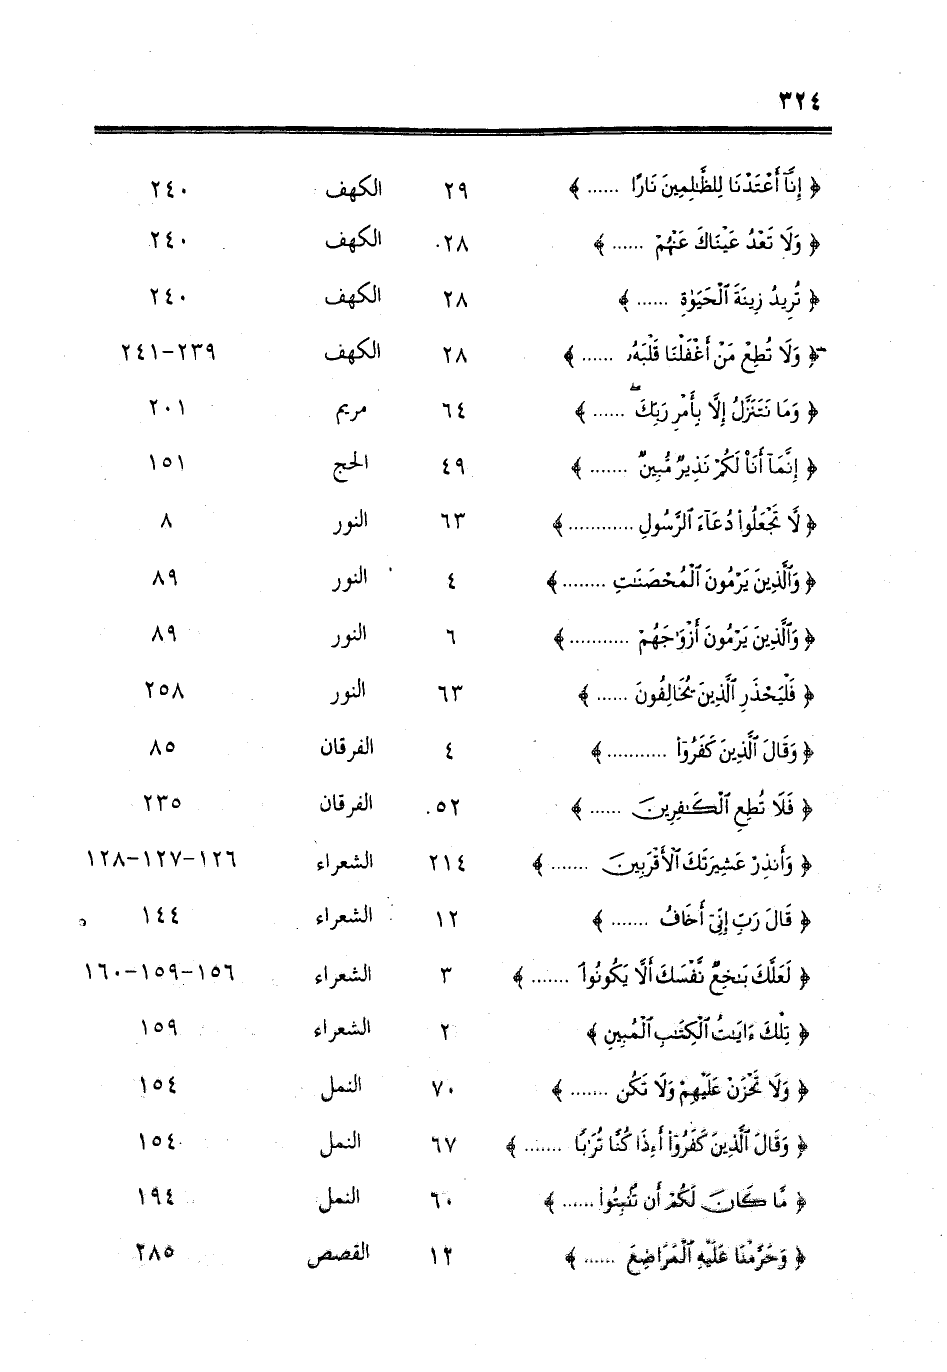 ٣٢٤
﴿ إِنَّآ أَعْتَدْنَا لِلظَّٰلِمِينَ نَارًا ...... ﴾ ٢٩ الكهف ٢٤٠
﴿ وَلَا تَعْدُ عَيْنَاكَ عَنْهُمْ ...... ﴾ ٢٨ الكهف ٢٤٠
﴿ تُرِيدُ زِينَةَ ٱلْحَيَوٰةِ ...... ﴾ ٢٨ الكهف ٢٤٠
﴿ وَلَا تُطِعْ مَنْ أَغْفَلْنَا قَلْبَهُۥ ...... ﴾ ٢٨ الكهف ٢٣٩-٢٤١
﴿ وَمَا نَتَنَزَّلُ إِلَّا بِأَمْرِ رَبِّكَ ۖ ...... ﴾ ٦٤ مريم ٢٠١
﴿ إِنَّمَآ أَنَا۠ لَكُمْ نَذِيرٌ مُّبِينٌ ....... ﴾ ٤٩ الحج ١٥١
﴿ لَّا تَجْعَلُوا۟ دُعَآءَ ٱلرَّسُولِ ............ ﴾ ٦٣ النور ٨
﴿ وَٱلَّذِينَ يَرْمُونَ ٱلْمُحْصَنَٰتِ ........ ﴾ ٤ النور ٨٩
﴿ وَٱلَّذِينَ يَرْمُونَ أَزْوَٰجَهُمْ ........... ﴾ ٦ النور ٨٩
﴿ فَلْيَحْذَرِ ٱلَّذِينَ يُخَالِفُونَ ...... ﴾ ٦٣ النور ٢٥٨
﴿ وَقَالَ ٱلَّذِينَ كَفَرُوٓا۟ ........... ﴾ ٤ الفرقان ٨٥
﴿ فَلَا تُطِعِ ٱلْكَٰفِرِينَ ...... ﴾ ٥٢ الفرقان ٢٣٥
﴿ وَأَنذِرْ عَشِيرَتَكَ ٱلْأَقْرَبِينَ ....... ﴾ ٢١٤ الشعراء ١٢٦-١٢٧-١٢٨
﴿ قَالَ رَبِّ إِنِّىٓ أَخَافُ ....... ﴾ ١٢ الشعراء ١٤٤
﴿ لَعَلَّكَ بَٰخِعٌ نَّفْسَكَ أَلَّا يَكُونُوا۟ ....... ﴾ ٣ الشعراء ١٥٦-١٥٩-١٦٠
﴿ تِلْكَ ءَايَٰتُ ٱلْكِتَٰبِ ٱلْمُبِينِ ﴾ ٢ الشعراء ١٥٩
﴿ وَلَا تَحْزَنْ عَلَيْهِمْ وَلَا تَكُن ....... ﴾ ٧٠ النمل ١٥٤
﴿ وَقَالَ ٱلَّذِينَ كَفَرُوٓا۟ أَءِذَا كُنَّا تُرَٰبًا ....... ﴾ ٦٧ النمل ١٥٤
﴿ مَّا كَانَ لَكُمْ أَن تُنۢبِتُوا۟ ...... ﴾ ٦٠ النمل ١٩٤
﴿ وَحَرَّمْنَا عَلَيْهِ ٱلْمَرَاضِعَ ...... ﴾ ١٢ القصص ٢٨٥